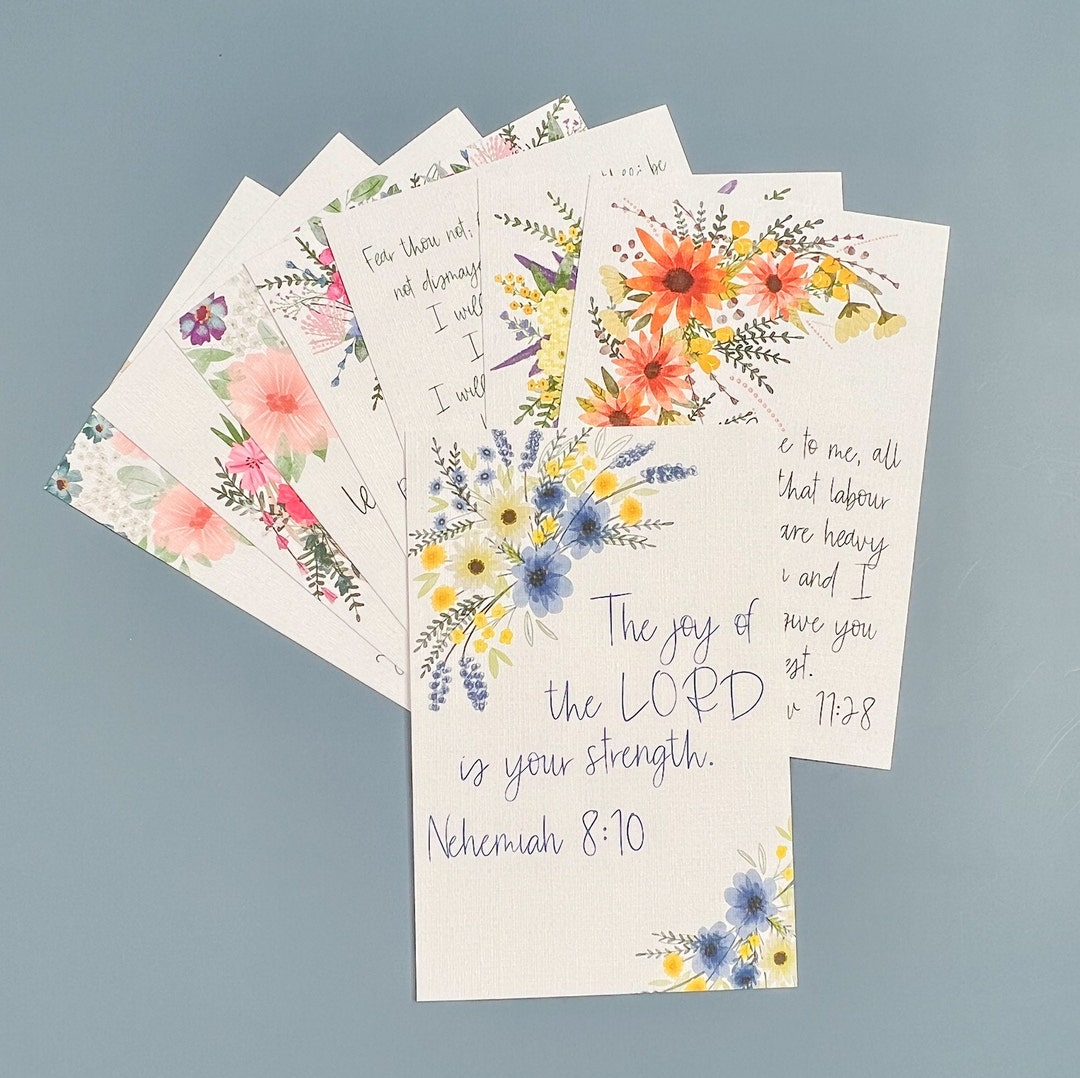 Fear thou not;
not dismay
I will
I
I will
be
le
e to me, all
that labour
are heavy
and I
give you
est.
11:28
The joy of
the LORD
is your strength.
Nehemiah 8:10